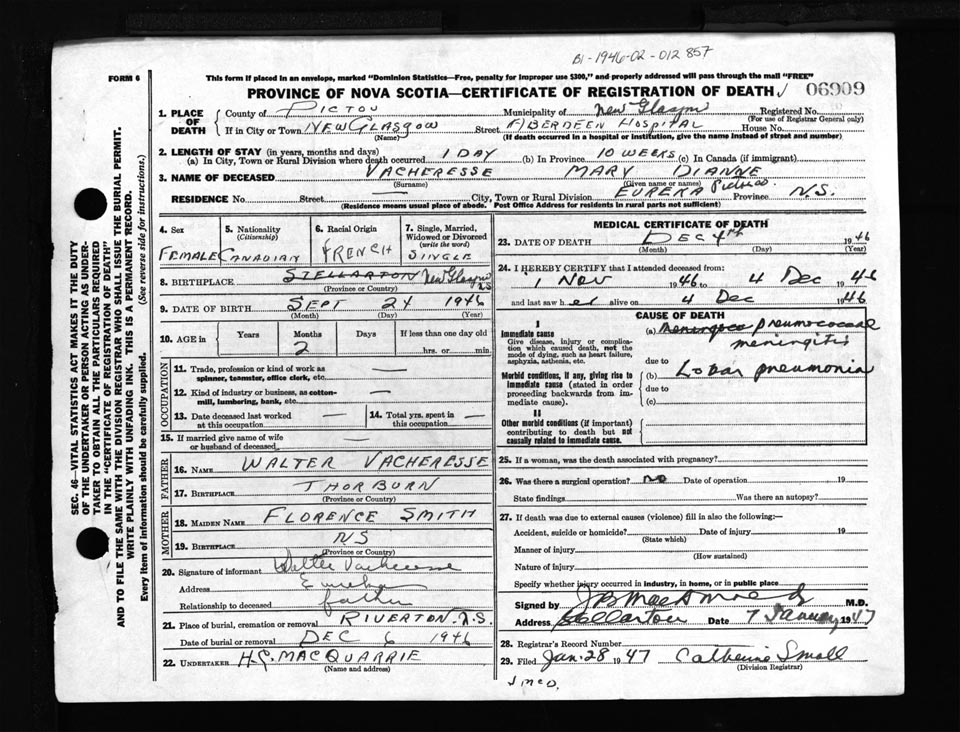 B1-1946-02-012857
FORM 6
This form if placed in an envelope, marked "Dominion Statistics—Free, penalty for improper use $300," and properly addressed will pass through the mail "FREE"
PROVINCE OF NOVA SCOTIA—CERTIFICATE OF REGISTRATION OF DEATH 06909
1. PLACE OF DEATH
County of PICTOU Municipality of New Glasgow Registered No.
(For use of Registrar General only)
If in City or Town NEW GLASGOW Street ABERDEEN HOSPITAL House No.
(Name) (If death occurred in a hospital or institution, give the name instead of street and number)
2. LENGTH OF STAY (in years, months and days)
(a) In City, Town or Rural Division where death occurred 1 DAY (b) In Province 10 WEEKS (c) In Canada (if immigrant)
3. NAME OF DECEASED VACHERESSE MARY DIANNE
(Surname) (Given name or names)
RESIDENCE No. Street City, Town or Rural Division EUREKA Pictou Province N.S.
(Residence means usual place of abode. Post Office Address for residents in rural parts not sufficient)
SEC. 46—VITAL STATISTICS ACT MAKES IT THE DUTY
OF THE UNDERTAKER OR PERSON ACTING AS UNDER-
TAKER TO OBTAIN ALL THE PARTICULARS REQUIRED
IN THE "CERTIFICATE OF REGISTRATION OF DEATH"
AND TO FILE THE SAME WITH THE DIVISION REGISTRAR WHO SHALL ISSUE THE BURIAL PERMIT.
WRITE PLAINLY WITH UNFADING INK. THIS IS A PERMANENT RECORD.
Every item of information should be carefully supplied. (See reverse side for instructions.)
4. Sex FEMALE
5. Nationality (Citizenship) CANADIAN
6. Racial Origin FRENCH
7. Single, Married, Widowed or Divorced (write the word) SINGLE
8. BIRTHPLACE STELLARTON New Glasgow NS
(Province or Country)
9. DATE OF BIRTH SEPT 24 1946
(Month) (Day) (Year)
10. AGE in Years Months Days If less than one day old
2 hrs. or min.
OCCUPATION
11. Trade, profession or kind of work as
spinner, teamster, office clerk, etc. —
12. Kind of industry or business, as cotton-
mill, lumbering, bank, etc. —
13. Date deceased last worked
at this occupation — 14. Total yrs. spent in
this occupation —
15. If married give name of wife
or husband of deceased —
FATHER
16. NAME WALTER VACHERESSE
17. BIRTHPLACE THORBURN
(Province or Country)
MOTHER
18. MAIDEN NAME FLORENCE SMITH
19. BIRTHPLACE NS
(Province or Country)
20. Signature of informant Walter Vacheresse
Address Eureka
Relationship to deceased father
21. Place of burial, cremation or removal RIVERTON, N.S.
Date of burial or removal DEC 6 1946
22. UNDERTAKER H.G. MACQUARRIE
(Name and address)
MEDICAL CERTIFICATE OF DEATH
23. DATE OF DEATH DEC 4TH 1946
(Month) (Day) (Year)
24. I HEREBY CERTIFY that I attended deceased from:
1 Nov 1946 to 4 Dec 1946
and last saw h er alive on 4 Dec 1946
CAUSE OF DEATH
I
Immediate cause
Give disease, injury or complica-
tion which caused death, not the
mode of dying, such as heart failure,
asphyxia, asthenia, etc.
(a) pneumococcal
meningitis
due to
Morbid conditions, if any, giving rise to
immediate cause (stated in order
proceeding backwards from im-
mediate cause).
(b) Lobar pneumonia
due to
(c)
II
Other morbid conditions (if important)
contributing to death but not
causally related to immediate cause.
25. If a woman, was the death associated with pregnancy?
26. Was there a surgical operation? no Date of operation 19
State findings Was there an autopsy?
27. If death was due to external causes (violence) fill in also the following:—
Accident, suicide or homicide? Date of injury 19
(State which)
Manner of injury
(How sustained)
Nature of injury
Specify whether injury occurred in industry, in home, or in public place
Signed by M.D.
Address Stellarton Date 7 January 1947
28. Registrar's Record Number
29. Filed Jan. 28 1947 Catherine Small
(Division Registrar)
J McD.